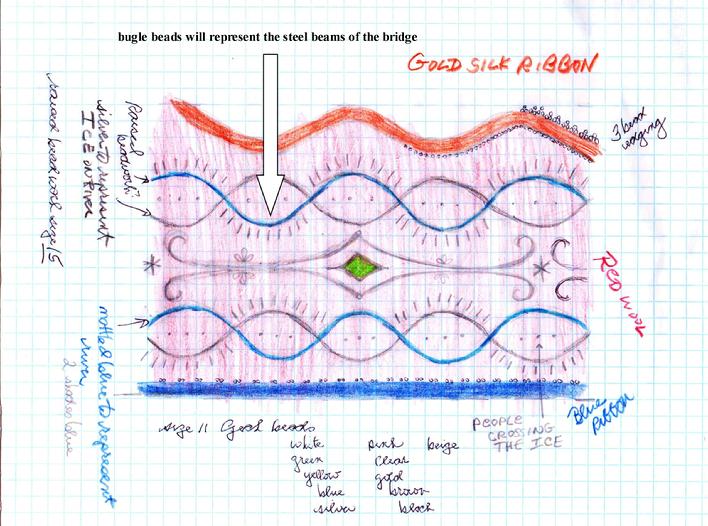 bugle beads will represent the steel beams of the bridge
GOLD SILK RIBBON
3 bead
edging
Raised
beadwork?
silver to represent
ICE ON RIVER
raised bead work size 15
RED WOOL
mottled blue to represent
river
2 shades blue
Blue
Ribbon
PEOPLE
CROSSING
THE ICE
size 11 Czech beads
white pink beige
green clear
yellow gold
blue brown
silver black